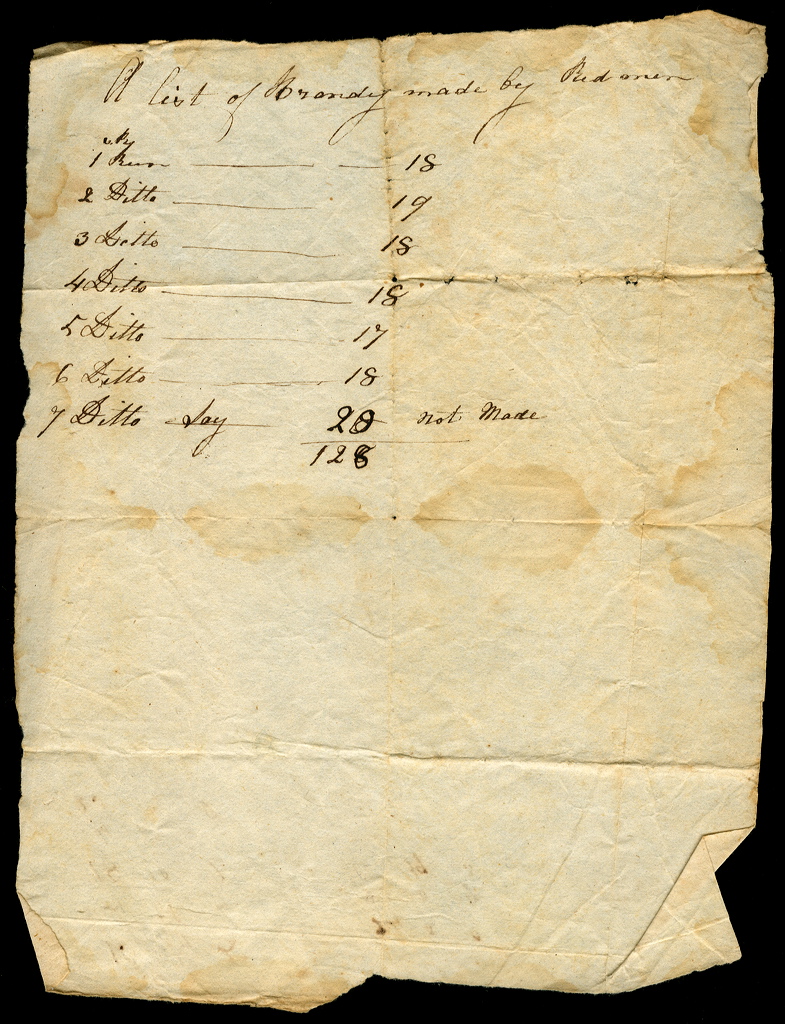 A list of Brandy made by Redmen
By
1 Run 18
2 Ditto 19
3 Ditto 18
4 Ditto 18
5 Ditto 17
6 Ditto 18
7 Ditto Say 20 not Made
128